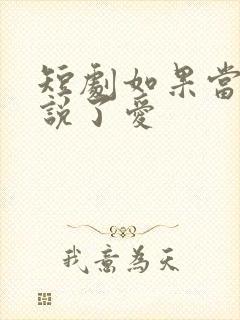 短劇如果當
說了愛
我意為天